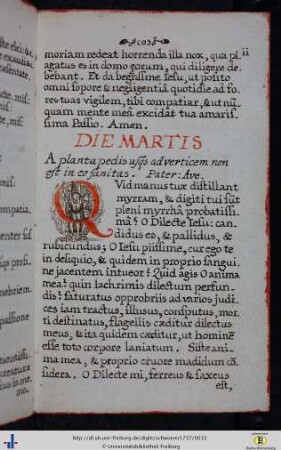 moriam redeat horrenda illa nox, qua pl
agatus es in domo eorum, qui diligere de
bebant. Et da begnissime Iesu, ut posito
omni sopore & negligentiâ quotidie ad fo
res tuas vigilem, tibi compatiar, & ut nū
quam mente meâ excidat tua amaris
sima Passio. Amen.
DIE MARTIS
A planta pedis usq ad verticem non
est in eo sanitas. Pater: Ave.
Quid manus tuæ distillant
myrram, & digiti tui sūt
pleni myrrhâ probatissi
mâ? O Dilecte Iesu: can
didus eo, & pallidus, &
rubicundus; O Iesu piissime, cur ego te
in deliquio, & quidem in proprio sangui
ne jacentem intueor? Quid agis O anima
mea? quin lachrimis dilectum perfun
dis? saturatus opprobriis ad varios judi
ces iam tractus, illusus, consputus, mor
ti destinatus, flagellis cæditur dilectus
meus, & ita quidem cæditur, ut hominē
esse toto corpore laniatum. Siste ani
ma mea, & proprio cruore madidum cō
sidera. O Dilecte mi, ferreus & saxeus
est,
http://dl.ub.uni-freiburg.de/diglit/schwoerer1737/0013
© Universitätsbibliothek Freiburg